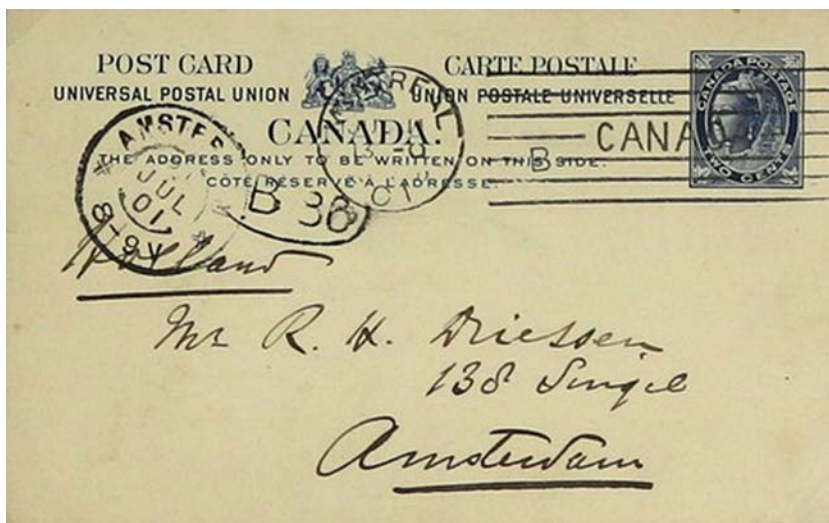 POST CARD CARTE POSTALE
UNIVERSAL POSTAL UNION UNION POSTALE UNIVERSELLE
CANADA.
THE ADDRESS ONLY TO BE WRITTEN ON THIS SIDE.
CÔTÉ RÉSERVÉ À L'ADRESSE.
CANADA POSTAGE
TWO CENTS
CANA
B
MONTREAL
AMSTE
JUL
01
8-9V
B 36
Holland
Mr R. H. Driessen
138 Singel
Amsterdam